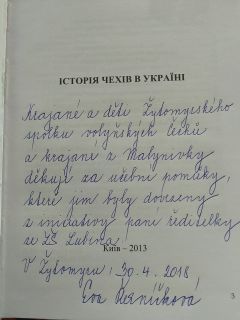 ІСТОРІЯ ЧЕХІВ В УКРАЇНІ
Krajané a děti Žytomyrského
spolku volyňských Čechů
a krajané z Malynivky
děkují za učební pomůcky,
které jim byly dovezeny
z iniciativy paní ředitelky
ze ZŠ Lubina.
Київ – 2013
V Žytomyru, 30.4.2018
Eva
3